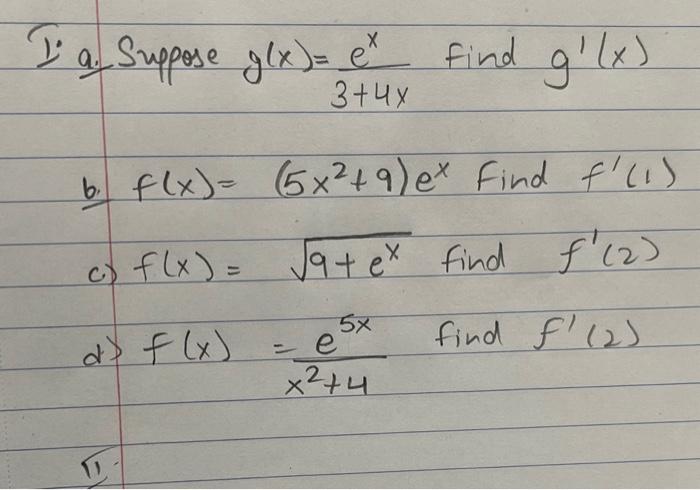 I. a. Suppose g(x) = e^x / (3+4x) find g'(x)
b. f(x) = (5x²+9)e^x Find f'(1)
c) f(x) = √(9+e^x) find f'(2)
d) f(x) = e^(5x) / (x²+4) find f'(2)
II.